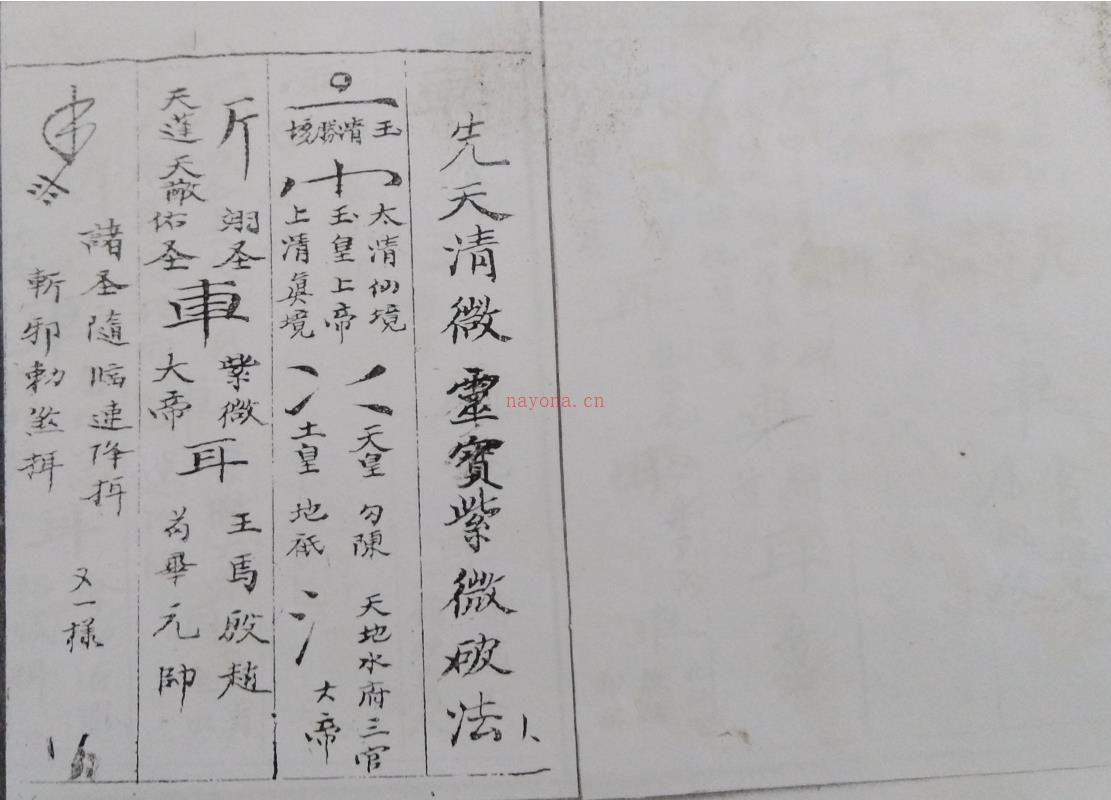 先天清微靈寶紫微破法
玉清勝境
太清仙境
玉皇上帝
上清真境
天皇 勾陳 天地水府三官
土皇 地祇 大帝
斤
翊圣 紫微 王馬殷趙
車
耳
天蓬天猷佑圣 大帝 苟畢元帥
諸圣隨臨速降揖 又一樣
斬邪勅煞揖
nayona.cn